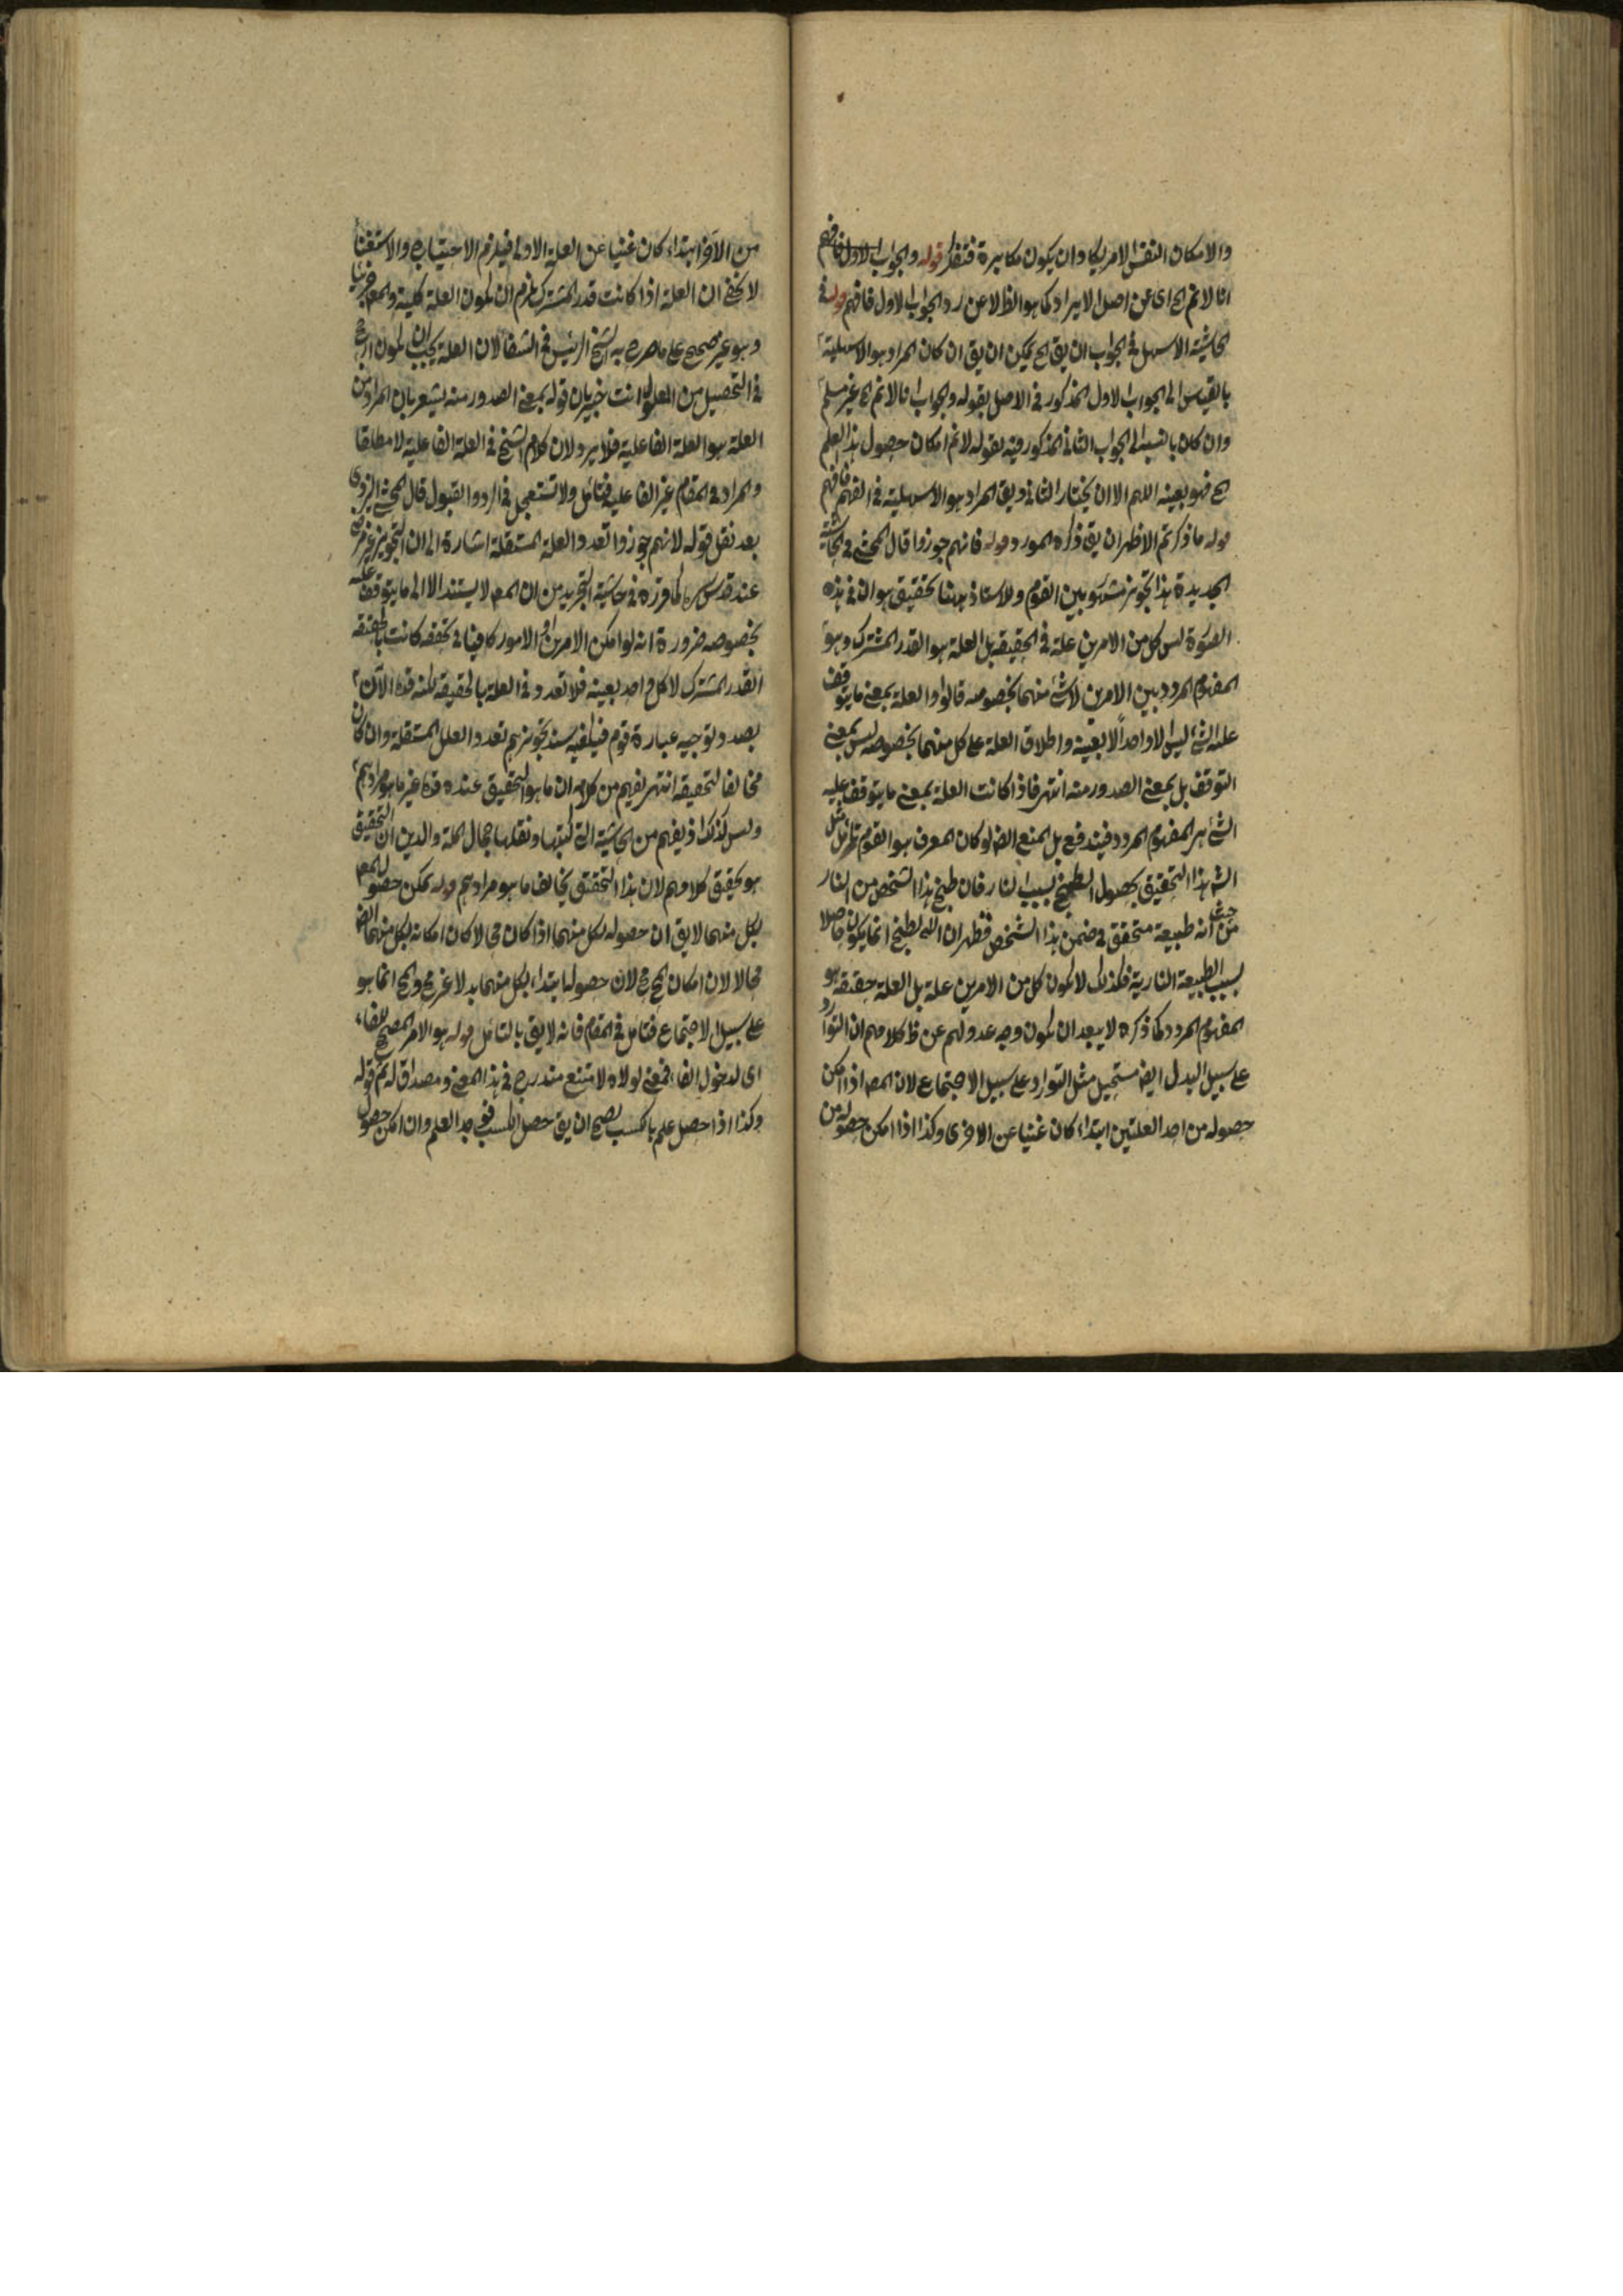 والامكان النفس الامر يكاد ان يكون مكابرة فتفكر قوله والجواب الاول فافهم
انا لا نم الخ اى عن اصل الايراد كما هو الظ لا عن رد الجواب الاول فافهم قوله فى
الحاشية الاسهل فى الجواب ان يق الخ يمكن ان يق ان كان المراد هو الاسهلية
بالقياس الى الجواب الاول المذكور فى الاصل بقوله والجواب انا لا نم الخ غير مسلم
وان كان بالنسبة الى الجواب الثانى المذكور فيه بقوله لا نم امكان حصول هذا العلم
الخ فهو بعينه اللهم الا ان يختار الثانى ويق المراد هو الاسهلية فى الفهم فافهم
قوله ما ذكرتم الاظهر ان يق ذكره المورد قوله فانهم جوزوا قال المحشى فى الحاشية
الجديدة هذا تجويز مشهور بين القوم وللاستاذ ههنا تحقيق هو ان فى هذه
الصورة ليس كل من الامرين علة فى الحقيقة بل العلة هو القدر المشترك وهو
المفهوم المردد بين الامرين لا شئ منهما بخصوصه قالوا والعلة بمعنى ما يتوقف
عليه الشئ ليس الا واحداً لا بعينه واطلاق العلة على كل منهما بخصوصه ليس بمعنى
التوقف بل بمعنى الصدور منه انتهى فاذا كانت العلة بمعنى ما يتوقف عليه
الشئ هو المفهوم المردد فيندفع بل المنع ايضا لو كان المعرف هو القوم
هذا التحقيق بحصول الطبخ بسبب النار فان طبخ هذا الشخص من النار
من حيث انه طبيعة متحقق فى ضمن هذا الشخص فظهر ان الطبخ انما يكون حاصلا
بسبب الطبيعة النارية فكذلك لا يكون كل من الامرين علة بل العلة حقيقة هو
المفهوم المردد كما ذكره لا يبعد ان يكون وجه عدولهم عن ظ كلامهم ان التوارد
على سبيل البدل ايض مستحيل مثل التوارد على سبيل الاجتماع لان المعه اذا امكن
حصوله من احد العلتين ابتداء كان غنيا عن الاخرى وكذا اذا امكن حصوله من
من الآخر ابتداء كان غنيا عن العلة الاولى فيلزم الاحتياج والاستغنا
لا يخفى ان العلة اذا كانت قدر المشترك لزم ان يكون العلة كلية والمعه جزئيا
وهو غير صحيح على ما صرح به الشيخ الرئيس فى الشفا لان العلة يجب ان يكون ارجح
فى التحصيل من المعلول انت خبير بان قوله بمعنى الصدور منه يشعر بان المراد من
العلة هو العلة الفاعلية فلا يرد لان كلام الشيخ فى العلة الفاعلية لا مطلقا
والمراد فى المقام غير الفاعلية فتامل ولا تستعجل فى الرد والقبول قال المحشى اليزدى
بعد نقل قوله لانهم جوزوا تعدد العلة المستقلة اشارة الى ان التجويز غير مرضى
عنده قدس سره لما قرره فى حاشية التجريد من ان المعه لا يستند الا الى ما يتوقف عليه
بخصوصه ضرورة انه لو امكن الامرين او الامور كافيا فى تحققه كانت بالحقيقة
القدر المشترك لا كل واحد بعينه فلا تعدد فى العلة بالحقيقة لكنه قده الآن
بصدد توجيه عبارة قوم فيكفيه سند تجويزهم تعدد العلل المستقلة وان كان
مخالفا لتحقيقه انتهى يفهم من كلامه ان ما هو التحقيق عنده قده غير ما هو مرادهم
وليس كذلك اذ يفهم من الحاشية التى كتبتها ونقلها جمال الملة والدين ان التحقيق
هو تحقيق كلامهم لان هذا التحقيق يخالف ما هو مرادهم قوله يمكن حصول المعه
بكل منهما لا يق ان حصوله بكل منهما اذا كان محالا كان امكانه بكل منهما ايضا
محالا لان امكان المح مح لان حصولها ابتداء بكل منهما بدلا غير مح والمح انما هو
على سبيل الاجتماع فتامل فى المقام فانه لايق بالتامل قوله هو الامر المصحح للفاء
اى لدخول الفاء فمعنى لولاه لامتنع مندرج فى هذا المعنى ومصداق له ثم قوله
وكذا اذا حصل علم بالكسب يصح ان يق حصل الكسب فوجد العلم وان امكن حصول